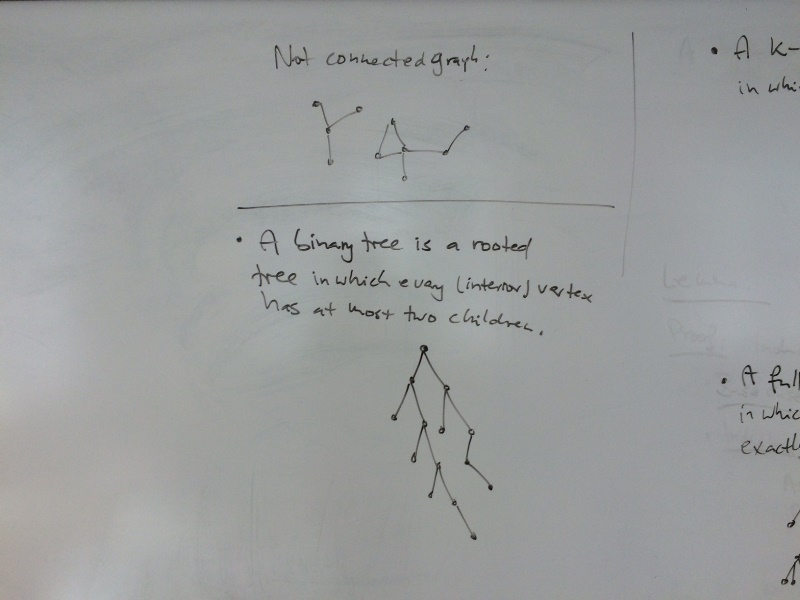 Not connected graph:
• A binary tree is a rooted
tree in which every (interior) vertex
has at most two children.
• A k-
in whi
• A full
in which
exactly